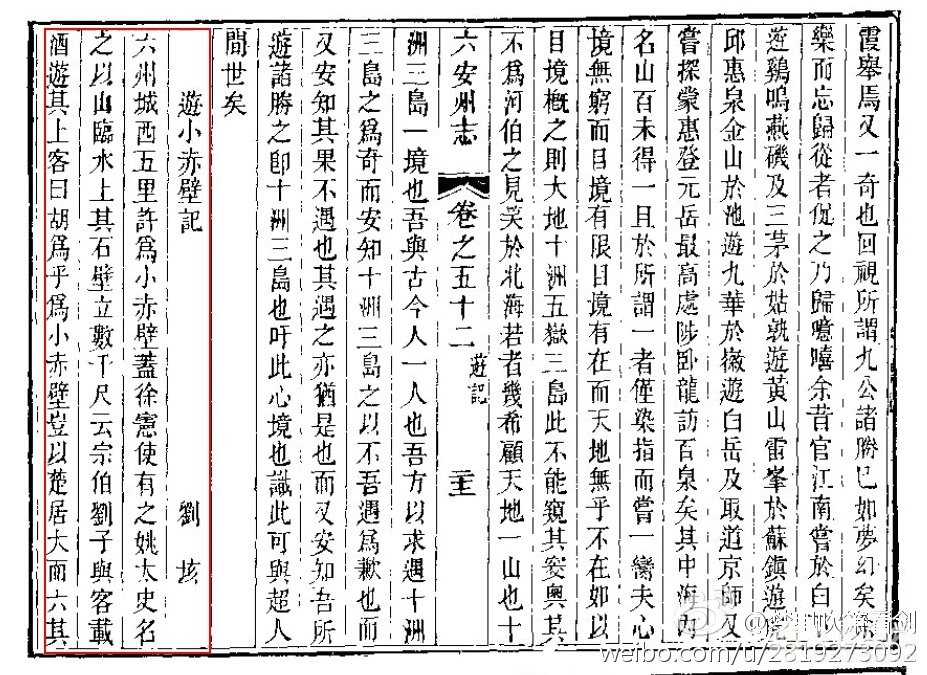 霞舉焉又一奇也回視所謂九公諸勝已如夢幻矣
樂而忘歸從者促之乃歸噫嘻余昔官江南嘗於白
遊鷄鳴燕磯及三茅於姑孰遊黃山雷峯於蘇鎮遊
邱惠泉金山於池遊九華於徽遊白岳及取道京師又
嘗探蒙惠登元岳最高處陟卧龍訪百泉矣其中海內
名山百未得一且於所謂一者僅染指而嘗一臠夫心
境無窮而目境有限目境有在而天地無乎不在如以
目境概之則大地十洲五嶽三島此不能窺其妄奧其
不爲河伯之見笑於北海若者幾希顧天地一山也十
六安州志 卷之五十二 遊記 二十五
洲三島一境也吾與古今人一人也吾方以求遇十洲
三島之爲奇而安知十洲三島之以不吾遇爲歉也而
又安知其果不遇也其遇之亦猶是也而又安知吾所
遊諸勝之卽十洲三島也吁此心境也識此可與超人
間世矣
遊小赤壁記 劉垓
六州城西五里許爲小赤壁蓋徐憲使有之姚太史名
之以山臨水上其石壁立數千尺云宗伯劉子與客載
酒遊其上客曰胡爲乎爲小赤壁豈以楚居大而六其
weibo.com/u/2819273092